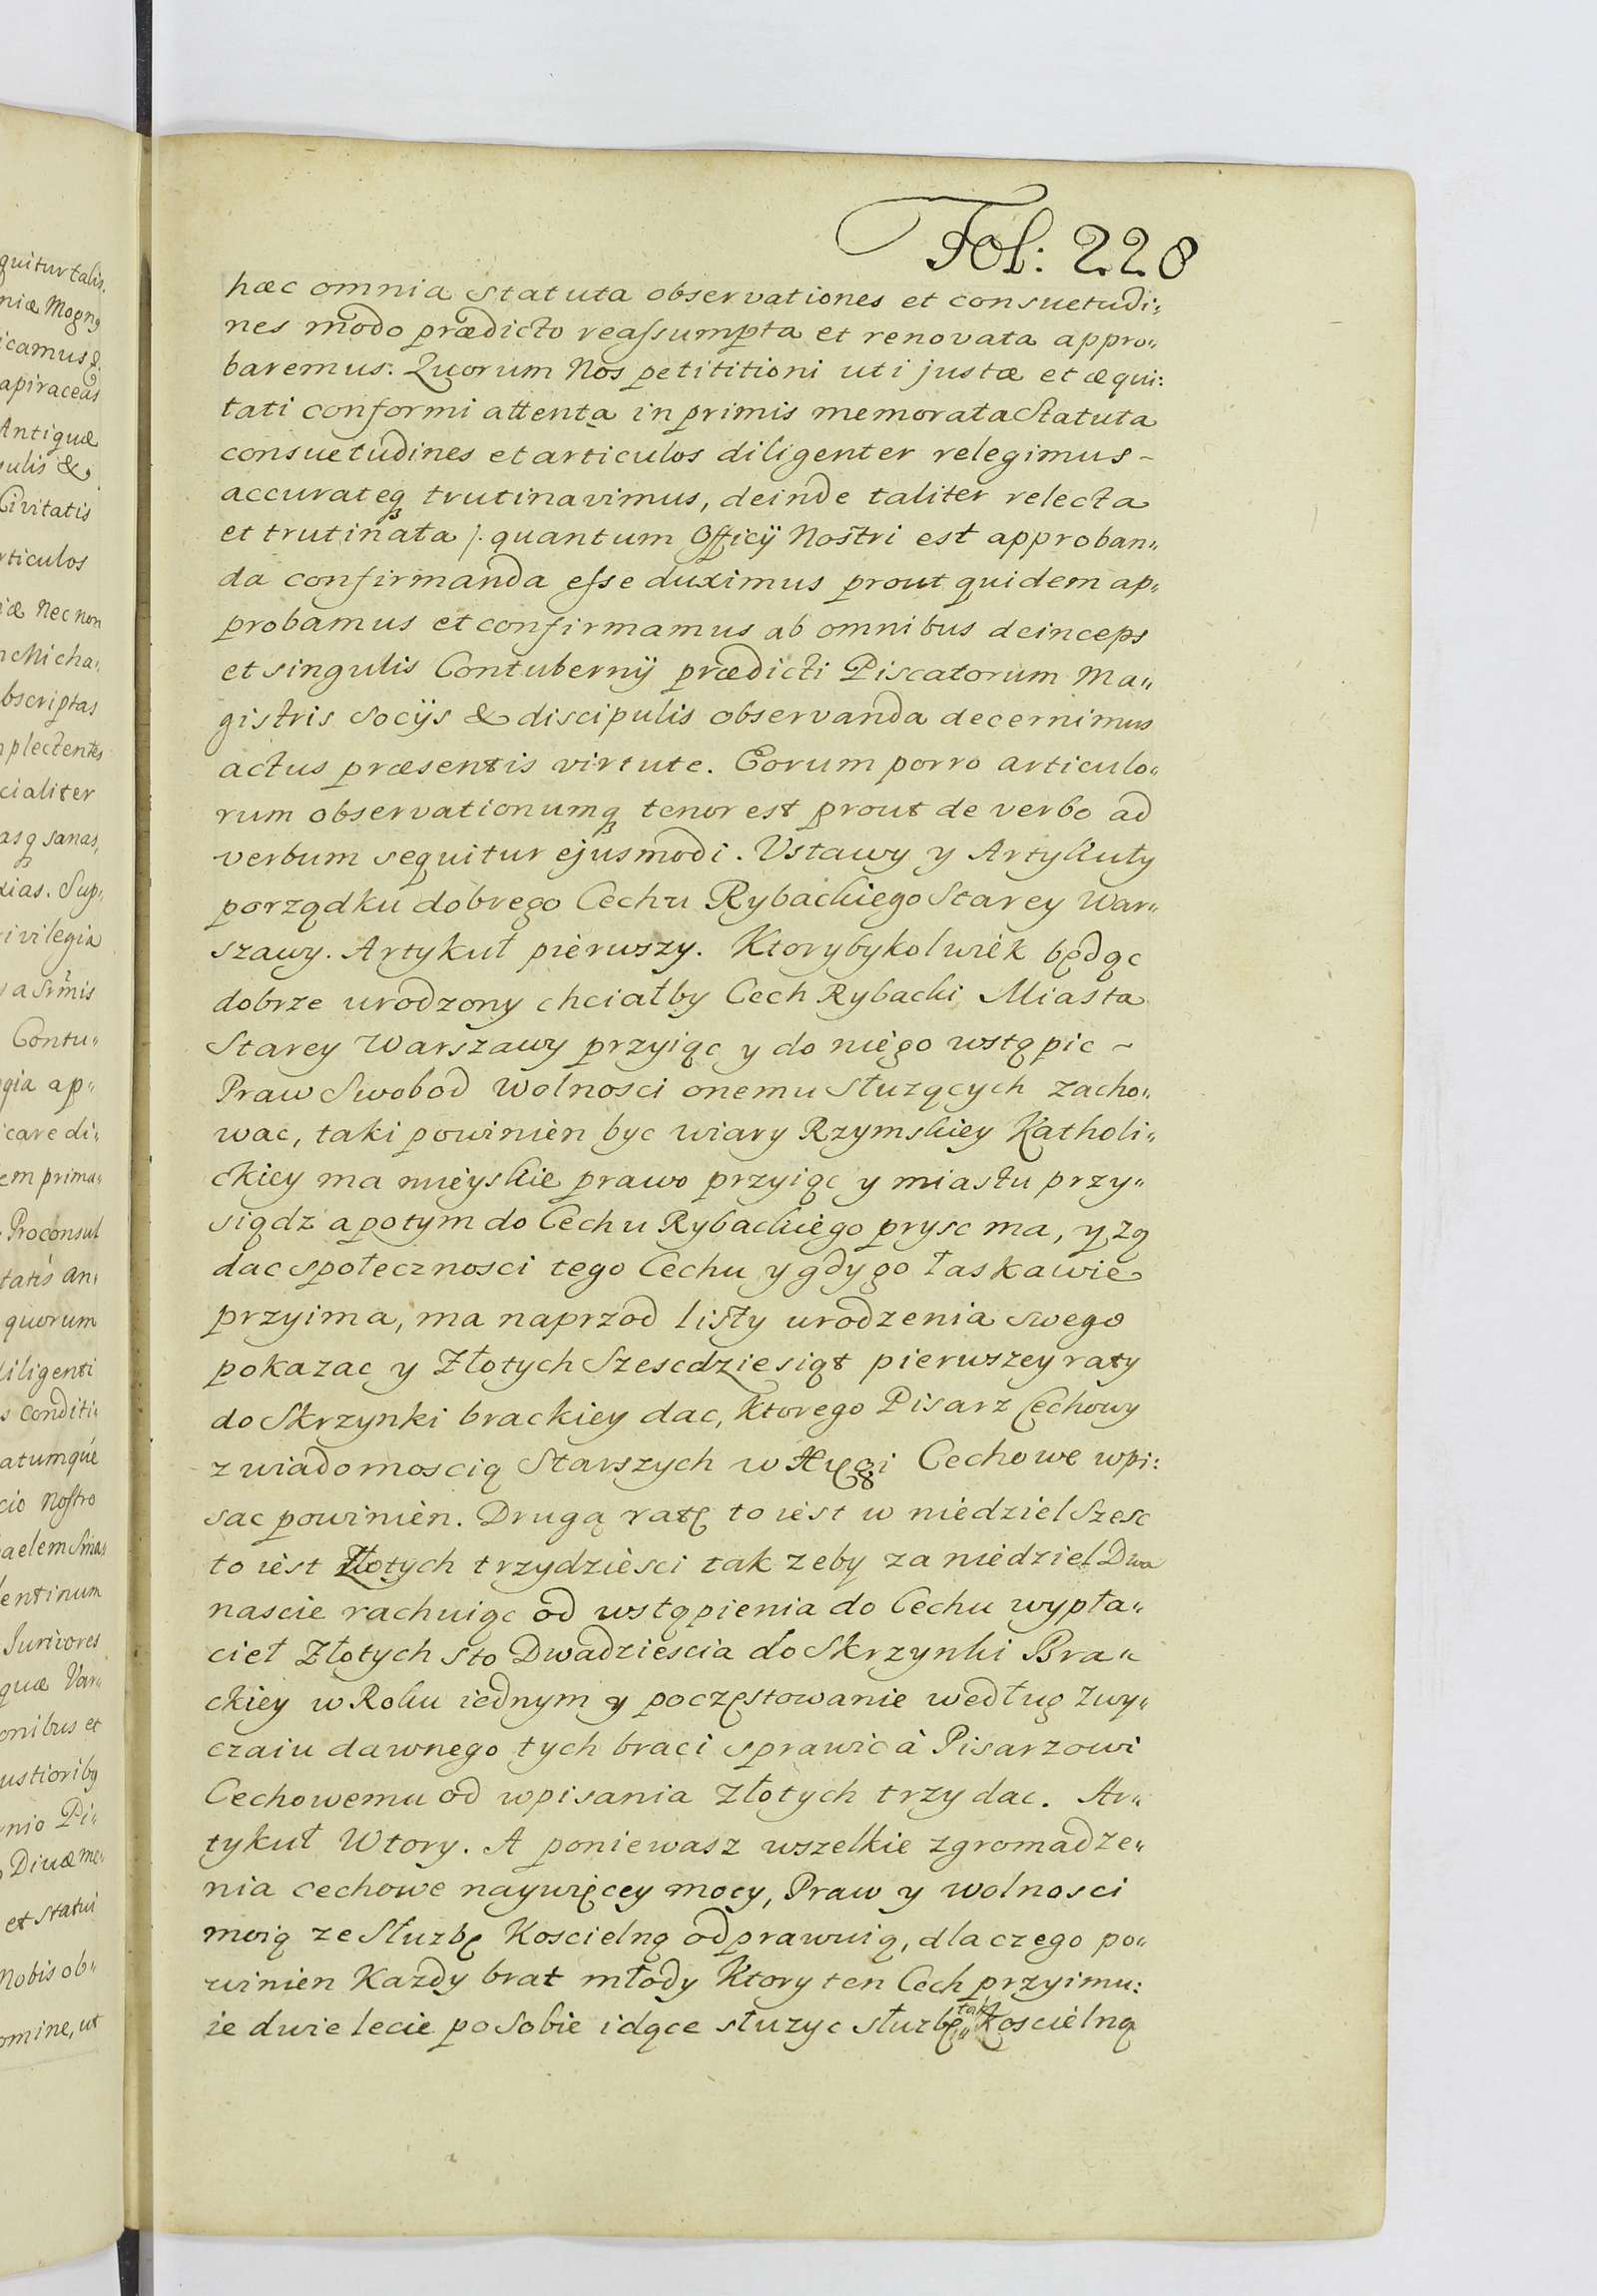 Fol: 228
hæc omnia statuta observationes et consuetudi:
nes modo prædicto reaſsumpta et renovata appro„
baremus: Quorum Nos petititioni uti justæ et æqui:
tati conformi attenta in primis memorata Statuta
consuetudines et articulos diligenter relegimus -
accurateq trutinavimus, deinde taliter relecta
et trutinata /. quantum Officÿ Nostri est approban„
da confirmanda eſse duximus prout quidem ap„
probamus et confirmamus ab omnibus deinceps
et singulis Contubernÿ prædicti Piscatorum Ma„
gistris Socÿs & discipulis observanda decernimus
actus præsentis virtute. Eorum porro articulo„
rum observationumq tenor est prout de verbo ad
verbum sequitur ejusmodi. Vstawy y Artykuły
porządku dobrego Cechu Rybackiego Starey War„
szawy. Artykuł pierwszy. Ktorybykolwiek będąc
dobrze urodzony chciałby Cech Rybacki Miasta
Starey Warszawy przyiąc y do niego wstąpic ~
Praw Swobod Wolnosci onemu słuzących zacho„
wac, taki powinien byc wiary Rzymskiey Katholi„
ckiey ma mieyskie prawo przyiąc y miastu przy„
siądz apotym do Cechu Rybackiego prysc ma, y zą
dac społecznosci tego Cechu y gdy go łaskawie
przyima, ma naprzod listy urodzenia swego
pokazac y Złotych Szescdziesiąt pierwszey raty
do Skrzynki brackiey dac, Ktorego Pisarz Cechowy
z wiadomoscią Starszych w Cechowe wpi:
sac powinien. Drugą ratę to iest w niedziel Szesc
to iest Złotych trzydziesci tak zeby za niedziel Dwa
nascie rachuiąc od wstąpienia do Cechu wypła„
cieł Złotych Sto Dwadziescia do Skrzynki Bra„
ckiey w Roku iednym y poczęstowanie według zwy„
czaiu dawnego tych braci sprawic à Pisarzowi
Cechowemu od wpisania Złotych trzy dac. Ar„
tykuł Wtory. A poniewasz wszelkie zgromadze„
nia cechowe naywięcey mocy, Praw y wolnosci
moią ze Służbę Koscielną odprawuią, dla czego po„
winien Kazdy brat młody Ktory ten Cech przyimu:
ie dwie lecie po sobie idące słuzyc słuzbę taką Koscielną